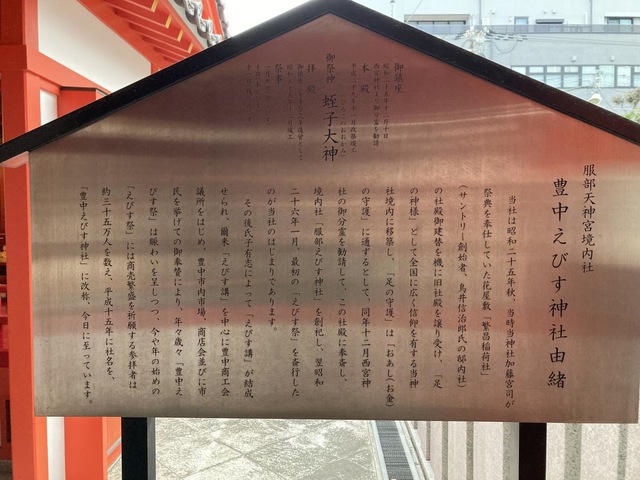 服部天神宮境内社
豊中えびす神社由緒
当社は昭和二十五年秋、当時当神社加藤宮司が
祭典を奉仕していた花屋敷「繁昌稲荷社」
（サントリー創始者、鳥井信治郎氏の邸内社）
の社殿御建替を機に旧社殿を譲り受け、「足
の神様」として全国に広く信仰を有する当神
社境内に移築し、「足の守護」は「おあし（お金）
の守護」に通ずるとして、同年十二月西宮神
社の御分霊を勧請して、この社殿に奉斎し、
境内社「服部えびす神社」を創祀し、翌昭和
二十六年一月、最初の「えびす祭」を斎行した
のが当社のはじまりであります。
その後氏子有志によって「えびす講」が結成
せられ、爾来「えびす講」を中心に豊中商工会
議所をはじめ、豊中市内市場、商店会並びに市
民を挙げての御奉賛により、年々歳々「豊中え
びす祭」は賑わいを呈しつつ、今や年の始めの
「えびす祭」には商売繁盛を祈願する参拝者は
約三十五万人を数え、平成十五年に社名を、
「豊中えびす神社」に改称、今日に至っています。
御鎮座
昭和二十五年十二月十日
西宮神社より御分霊を勧請
本殿
御祭神
蛭子大神
拝殿
祭事